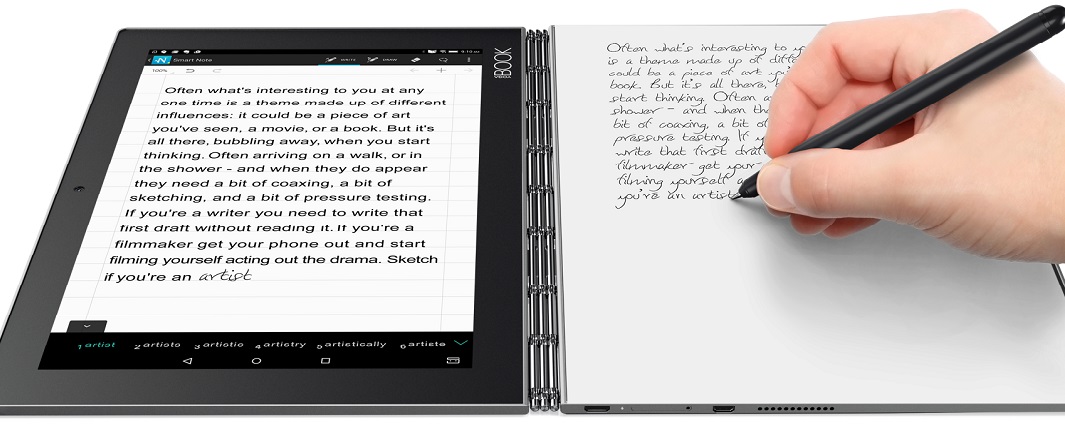 9:10
Smart Note
WRITE
DRAW
100%
Often what's interesting to you at any
one time is a theme made up of different
influences: it could be a piece of art
you've seen, a movie, or a book. But it's
all there, bubbling away, when you start
thinking. Often arriving on a walk, or in
the shower - and when they do appear
they need a bit of coaxing, a bit of
sketching, and a bit of pressure testing.
If you're a writer you need to write that
first draft without reading it. If you're a
filmmaker get your phone out and start
filming yourself acting out the drama. Sketch
if you're an artist
1 artist 2 artists 3 artistic 4 artistry 5 artistically 6 artiste
BOOK
Often what's interesting to
is a theme made up of
could be a piece of art
book. But it's all there,
start thinking. Often
shower - and when
bit of coaxing, a bit of
pressure testing. If
write that first
filmmaker get
filming yourself
you're an artist